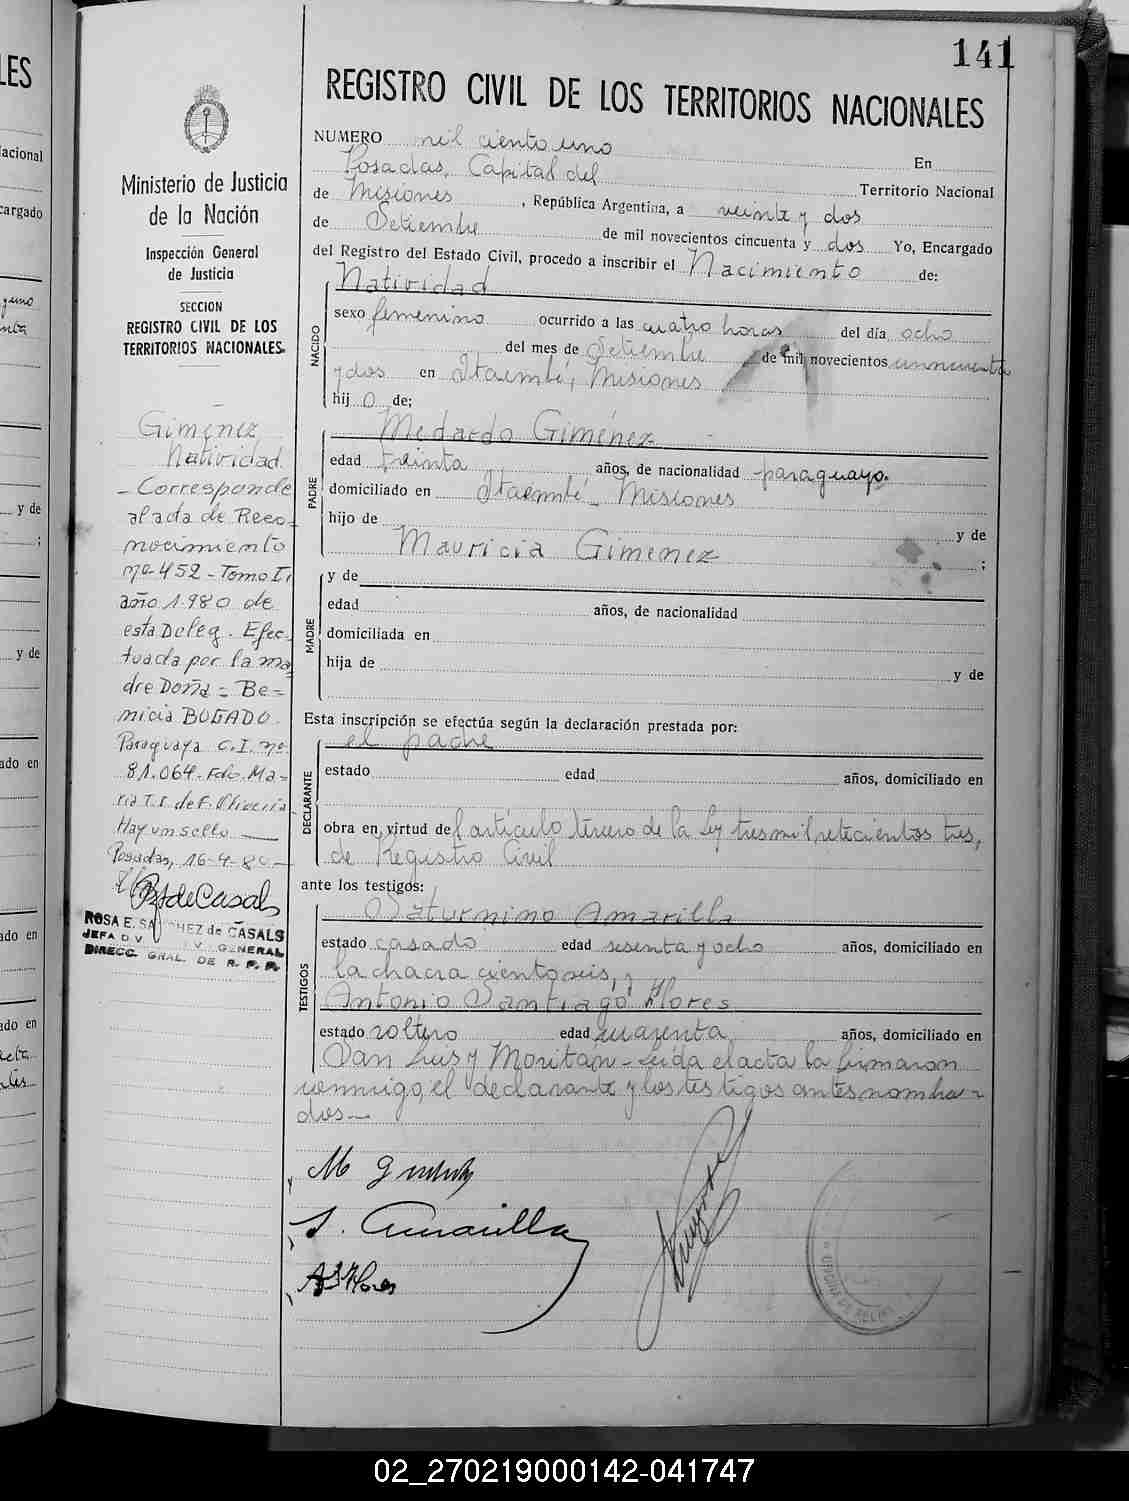 141
REGISTRO CIVIL DE LOS TERRITORIOS NACIONALES
NUMERO mil ciento uno En
Posadas, Capital del Territorio Nacional
de Misiones, República Argentina, a veinte y dos
de Setiembre de mil novecientos cincuenta y dos Yo, Encargado
del Registro del Estado Civil, procedo a inscribir el Nacimiento de:
NACIDO
Natividad
sexo femenino ocurrido a las cuatro horas del día ocho
del mes de Setiembre de mil novecientos cincuenta
y dos en Itaembé, Misiones
hij o de;
PADRE
Medardo Giménez
edad treinta años, de nacionalidad paraguayo.
domiciliado en Itaembé - Misiones
hijo de y de
Mauricia Gimenez ;
MADRE
y de
edad años, de nacionalidad
domiciliada en
hija de y de
Esta inscripción se efectúa según la declaración prestada por:
DECLARANTE
el padre
estado edad años, domiciliado en
obra en virtud del artículo tercero de la Ley tres mil, setecientos tres,
de Registro Civil
ante los testigos:
TESTIGOS
Saturnino Amarilla
estado casado edad sesenta y ocho años, domiciliado en
la chacra ciento seis, y
Antonio Santiago Flores
estado soltero edad cuarenta años, domiciliado en
San Luis y Moritán - Leida el acta la firmaron
conmigo, el declarante y los testigos antes nombra-
dos -
S. Amarilla
A S Flores
Ministerio de Justicia
de la Nación
Inspección General
de Justicia
SECCION
REGISTRO CIVIL DE LOS
TERRITORIOS NACIONALES.
Giménez
Natividad.
- Corresponde
al acta de Reco-
nocimiento
nº 452 - Tomo I,
año 1.980 de
esta Deleg. Efec-
tuada por la ma
dre Doña = Be=
nicia BOGADO.
Paraguaya C.I. nº
81.064 - Fdo. Ma-
ria T. I. de F. Oliveira
Hay un sello
Posadas, 16-4-80 -
RS de Casals
ROSA E. SANCHEZ de CASALS
JEFA DIV. GENERAL
DIRECC. GRAL. DE R. P. P.
LES
acional
cargado
y de
;
y de
ado en
ado en
ado en
02_270219000142-041747